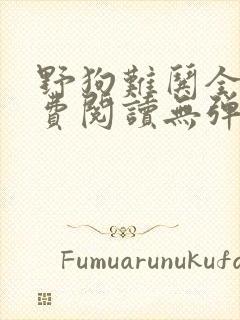 野狗難關全
費閱讀無彈
Fumuarunukufo